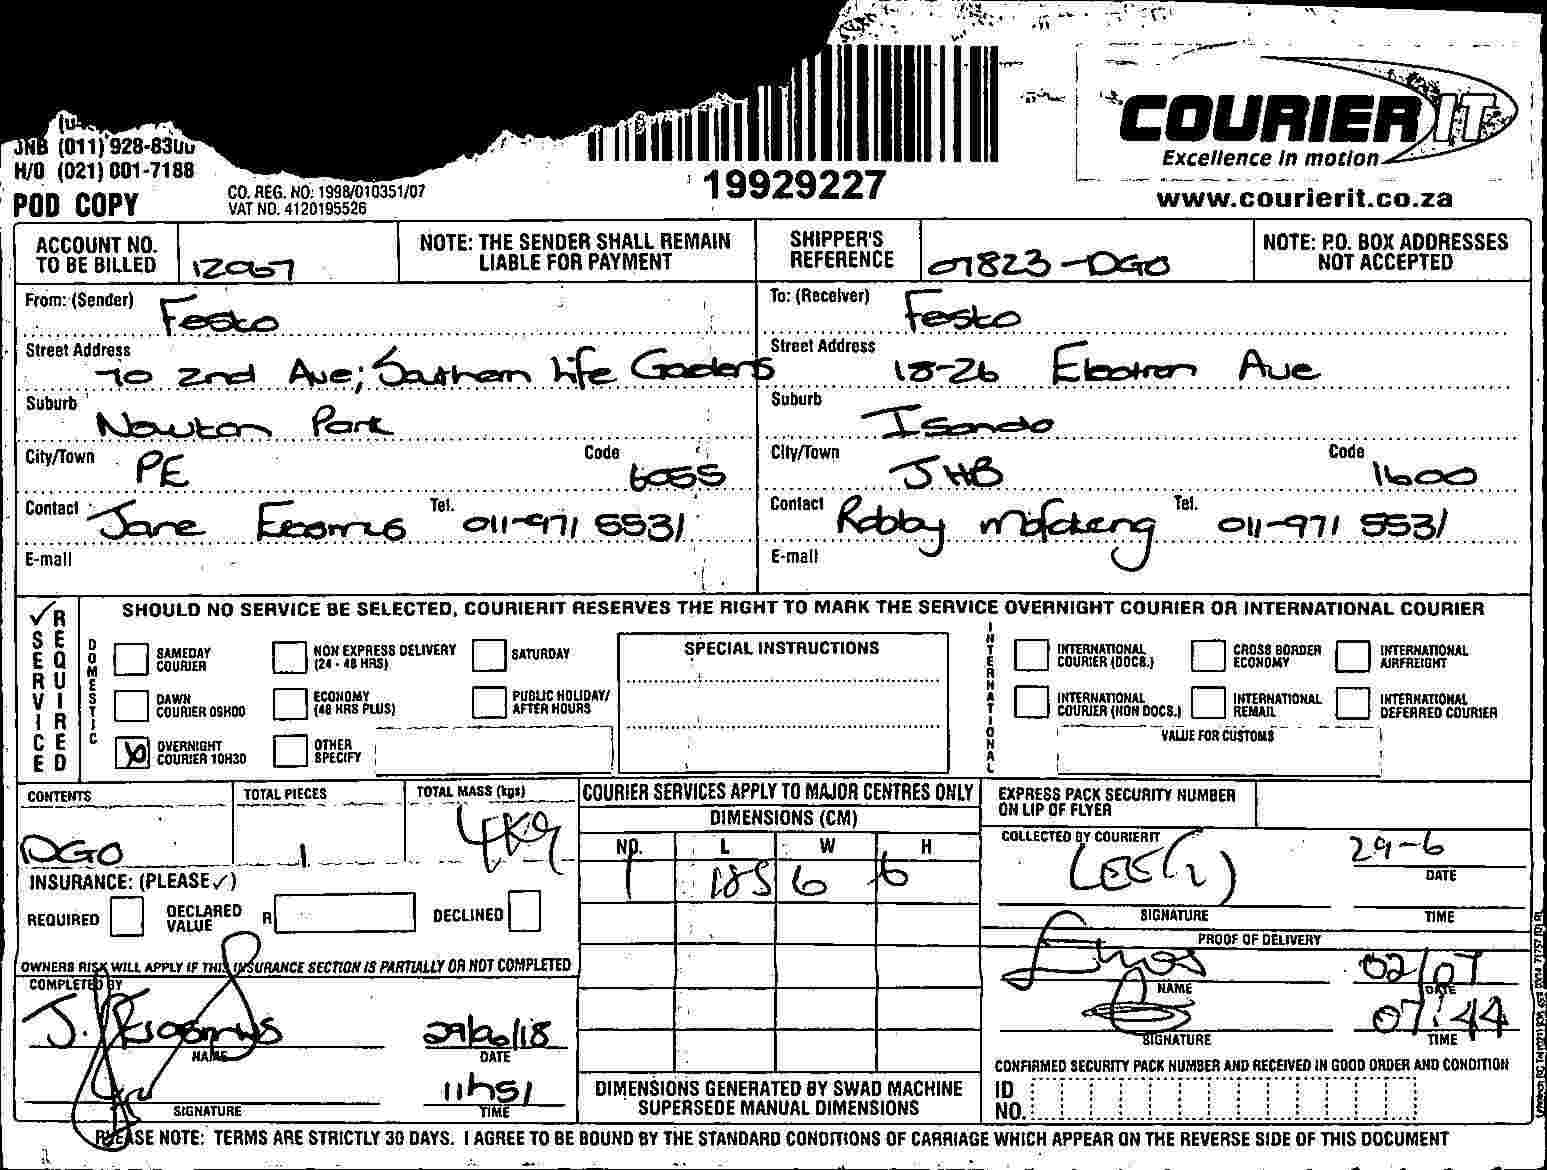 JNB (011) 928-8300
H/O (021) 001-7188
POD COPY
CO. REG. NO: 1998/010351/07
VAT NO. 4120195526
19929227
COURIER IT
Excellence in motion
www.courierit.co.za
ACCOUNT NO. TO BE BILLED
12067
NOTE: THE SENDER SHALL REMAIN LIABLE FOR PAYMENT
SHIPPER'S REFERENCE
07823-DGO
NOTE: P.O. BOX ADDRESSES NOT ACCEPTED
From: (Sender) Festo
Street Address 70 2nd Ave; Southern Life Gardens
Suburb Newton Park
City/Town PE Code 6055
Contact Jane Erasmus Tel. 011-971 5531
E-mail
To: (Receiver) Festo
Street Address 18-26 Electron Ave
Suburb Isando
City/Town JHB Code 1600
Contact Robby Mofokeng Tel. 011-971 5531
E-mail
✓ SERVICE REQUIRED
SHOULD NO SERVICE BE SELECTED, COURIERIT RESERVES THE RIGHT TO MARK THE SERVICE OVERNIGHT COURIER OR INTERNATIONAL COURIER
DOMESTIC
SAMEDAY COURIER
NON EXPRESS DELIVERY (24 - 48 HRS)
SATURDAY
DAWN COURIER 09H00
ECONOMY (48 HRS PLUS)
PUBLIC HOLIDAY/ AFTER HOURS
OVERNIGHT COURIER 10H30
OTHER SPECIFY
SPECIAL INSTRUCTIONS
INTERNATIONAL
INTERNATIONAL COURIER (DOCS.)
CROSS BORDER ECONOMY
INTERNATIONAL AIRFREIGHT
INTERNATIONAL COURIER (NON DOCS.)
INTERNATIONAL REMAIL
INTERNATIONAL DEFERRED COURIER
VALUE FOR CUSTOMS
CONTENTS
DGO
TOTAL PIECES
1
TOTAL MASS (kgs)
4KG
INSURANCE: (PLEASE ✓)
REQUIRED
DECLARED VALUE R
DECLINED
OWNERS RISK WILL APPLY IF THIS INSURANCE SECTION IS PARTIALLY OR NOT COMPLETED
COMPLETED BY
J. Erasmus
NAME
29/06/18
DATE
SIGNATURE
11h51
TIME
COURIER SERVICES APPLY TO MAJOR CENTRES ONLY
DIMENSIONS (CM)
NO. L W H
1 185 6 6
DIMENSIONS GENERATED BY SWAD MACHINE SUPERSEDE MANUAL DIMENSIONS
EXPRESS PACK SECURITY NUMBER ON LIP OF FLYER
COLLECTED BY COURIERIT
29-6
DATE
SIGNATURE
TIME
PROOF OF DELIVERY
NAME
02/07
DATE
SIGNATURE
07:44
TIME
CONFIRMED SECURITY PACK NUMBER AND RECEIVED IN GOOD ORDER AND CONDITION
ID NO.
PLEASE NOTE: TERMS ARE STRICTLY 30 DAYS. I AGREE TO BE BOUND BY THE STANDARD CONDITIONS OF CARRIAGE WHICH APPEAR ON THE REVERSE SIDE OF THIS DOCUMENT